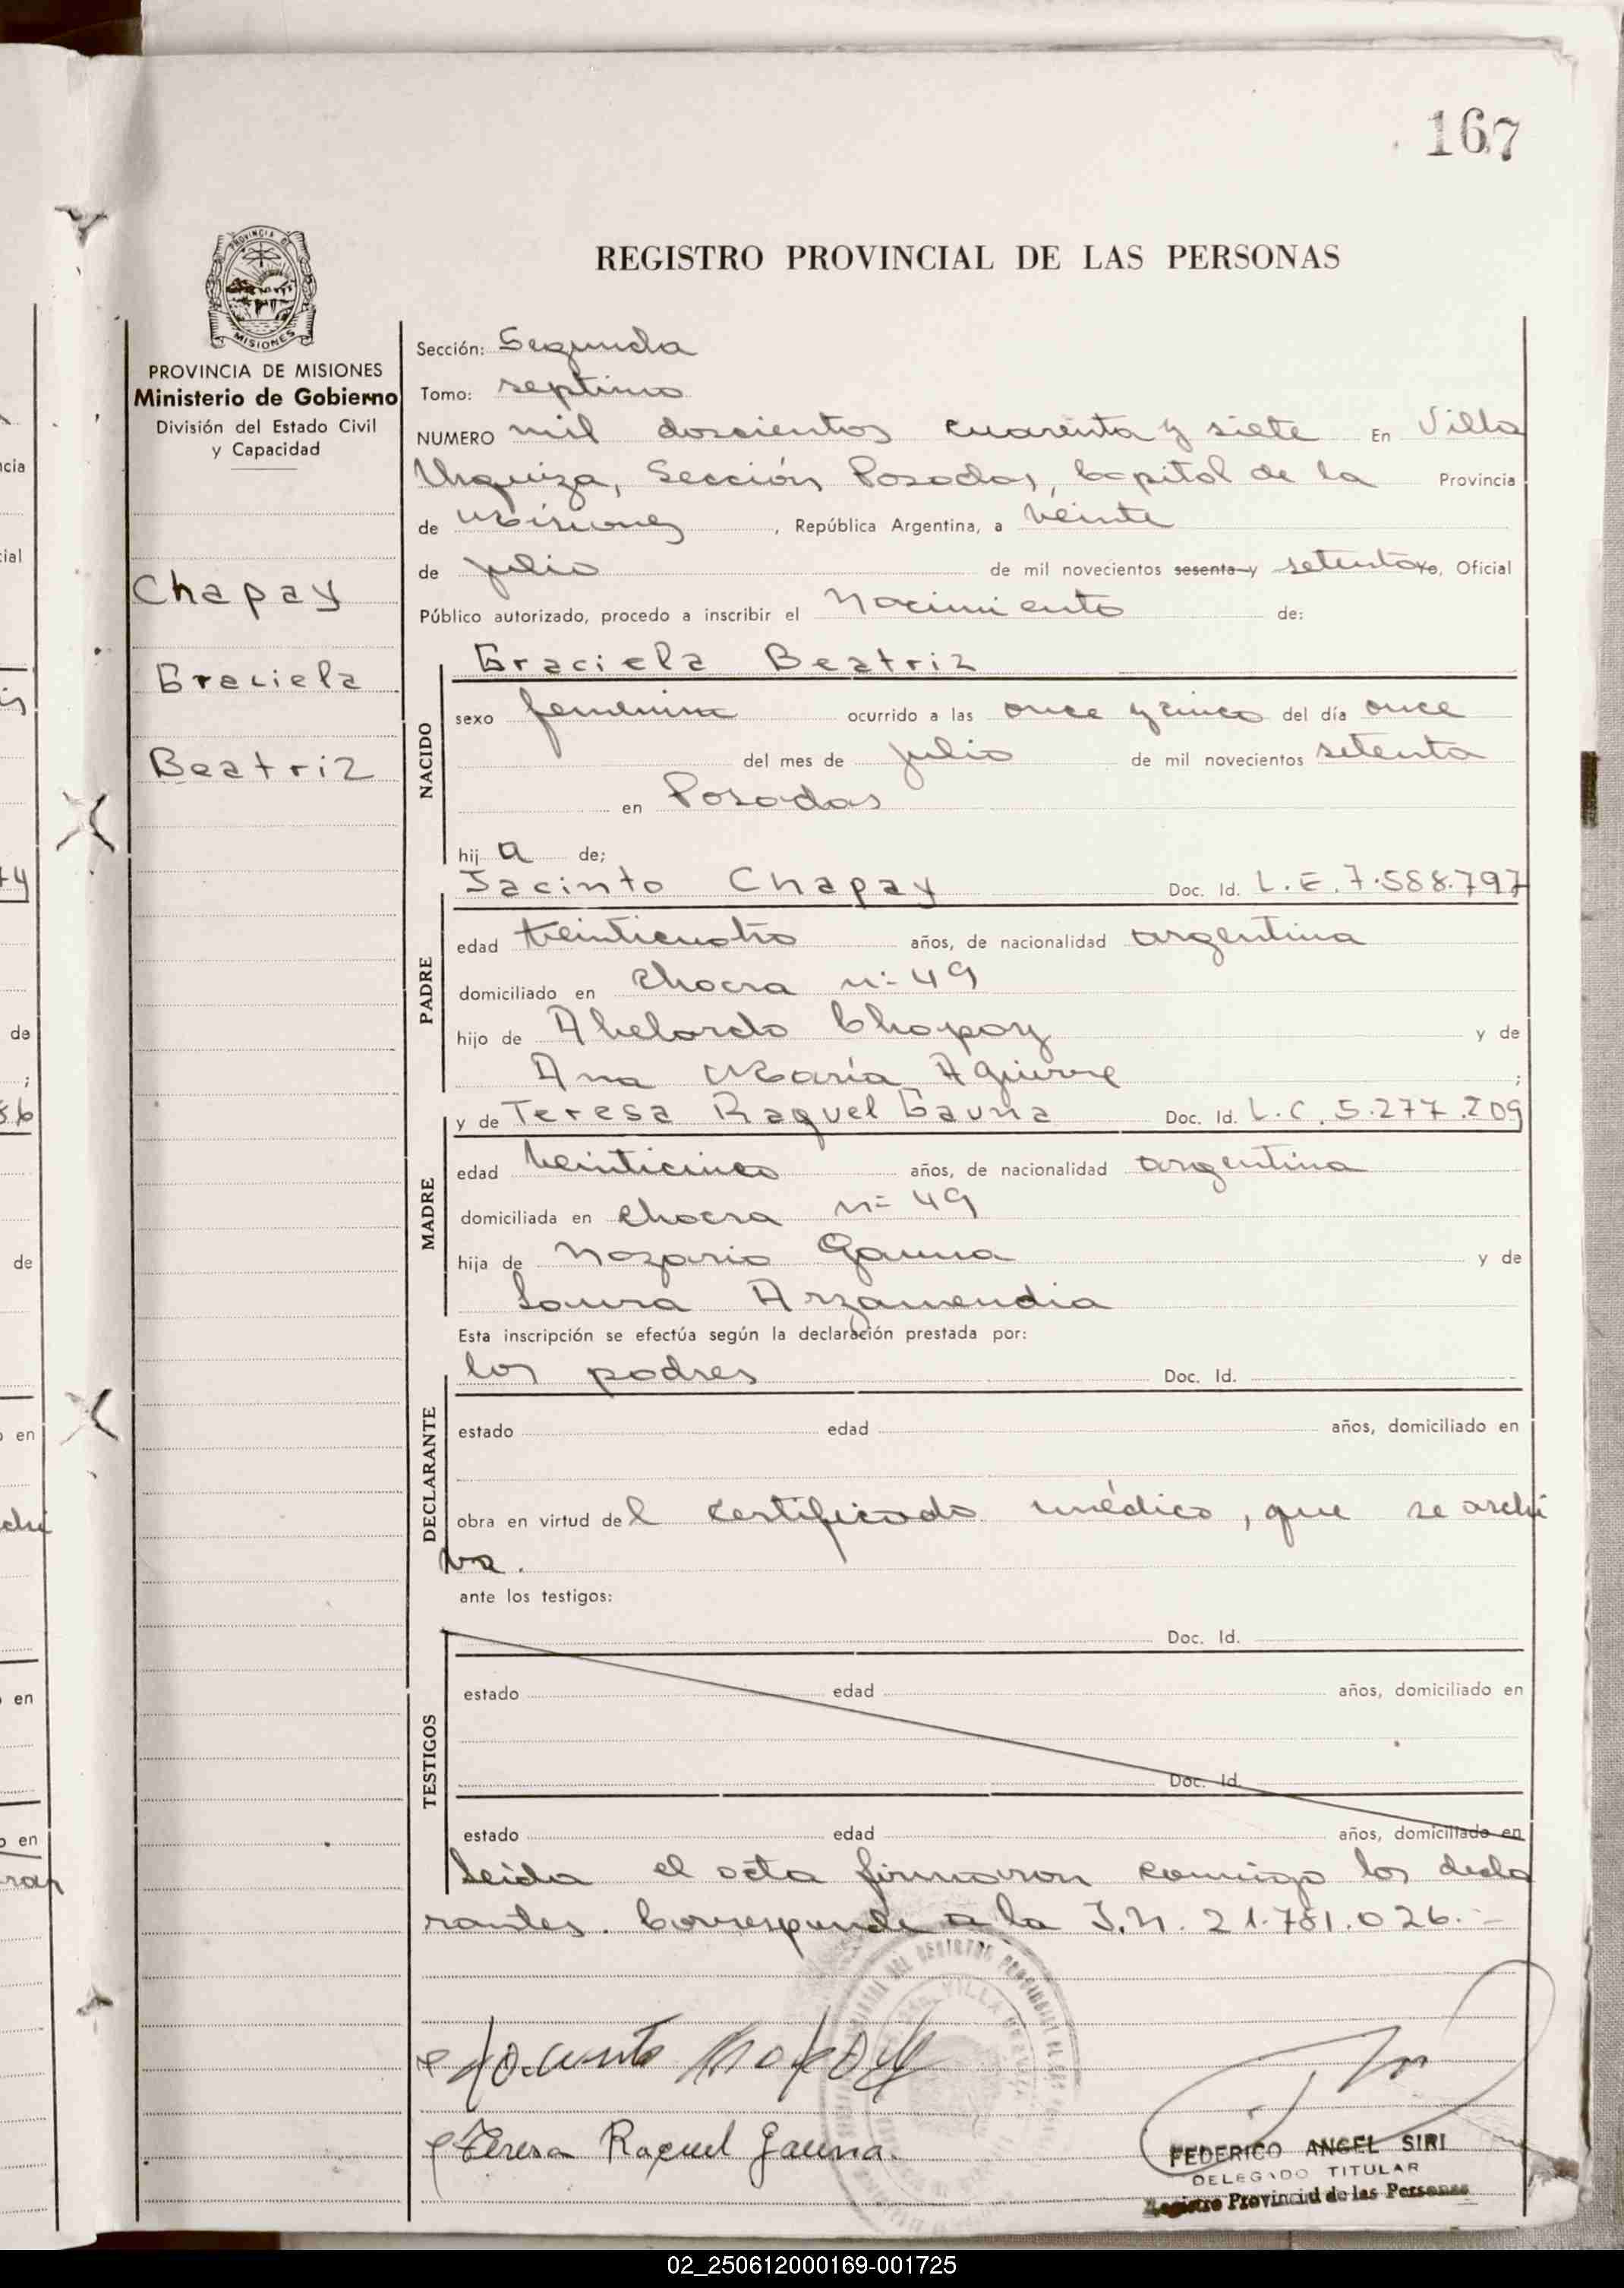 167
REGISTRO PROVINCIAL DE LAS PERSONAS
PROVINCIA DE MISIONES
Ministerio de Gobierno
División del Estado Civil
y Capacidad
Chapay
Graciela
Beatriz
Sección: Segunda
Tomo: septimo
NUMERO mil doscientos cuarenta y siete En Villa
Urquiza, Sección Posadas, Capital de la Provincia
de Misiones, República Argentina, a veinte
de julio de mil novecientos sesenta y setenta, Oficial
Público autorizado, procedo a inscribir el nacimiento de:
NACIDO
Graciela Beatriz
sexo femenino ocurrido a las once y cinco del día once
del mes de julio de mil novecientos setenta
en Posadas
hij a de;
PADRE
Jacinto Chapay Doc. Id. L.E. 7.588.797
edad veinticuatro años, de nacionalidad argentina
domiciliado en chacra nº 49
hijo de Abelardo Chapay y de
Ana María Aguirre ;
MADRE
y de Teresa Raquel Gauna Doc. Id. L.C. 5.277.209
edad veinticinco años, de nacionalidad argentina
domiciliada en chacra nº 49
hija de Nazario Gauna y de
Laura Arzamendia
DECLARANTE
Esta inscripción se efectúa según la declaración prestada por:
los padres Doc. Id.
estado edad años, domiciliado en
obra en virtud del certificado médico, que se archi
va.
ante los testigos:
TESTIGOS
Doc. Id.
estado edad años, domiciliado en
Doc. Id.
estado edad años, domiciliado en
Leida el acta firmaron conmigo los decla
rantes. Corresponde a la I.N. 21.781.026.-
Jacinto Chapay
Teresa Raquel Gauna.
FEDERICO ANGEL SIRI
DELEGADO TITULAR
Registro Provincial de las Personas
02_250612000169-001725